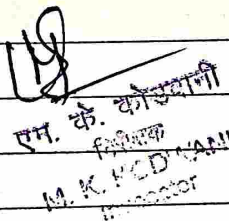 एम. के. कोडवानी
निरीक्षक
M. K. KODWANI
Inspector